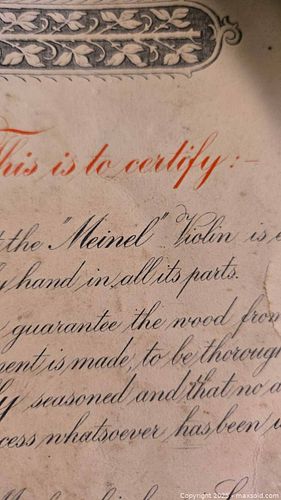 This is to certify:-
the "Meinel" Violin is
hand in all its parts.
guarantee the wood from
is made, to be
seasoned and that no
whatsoever has been
Copyright 2025 - maxsold.com